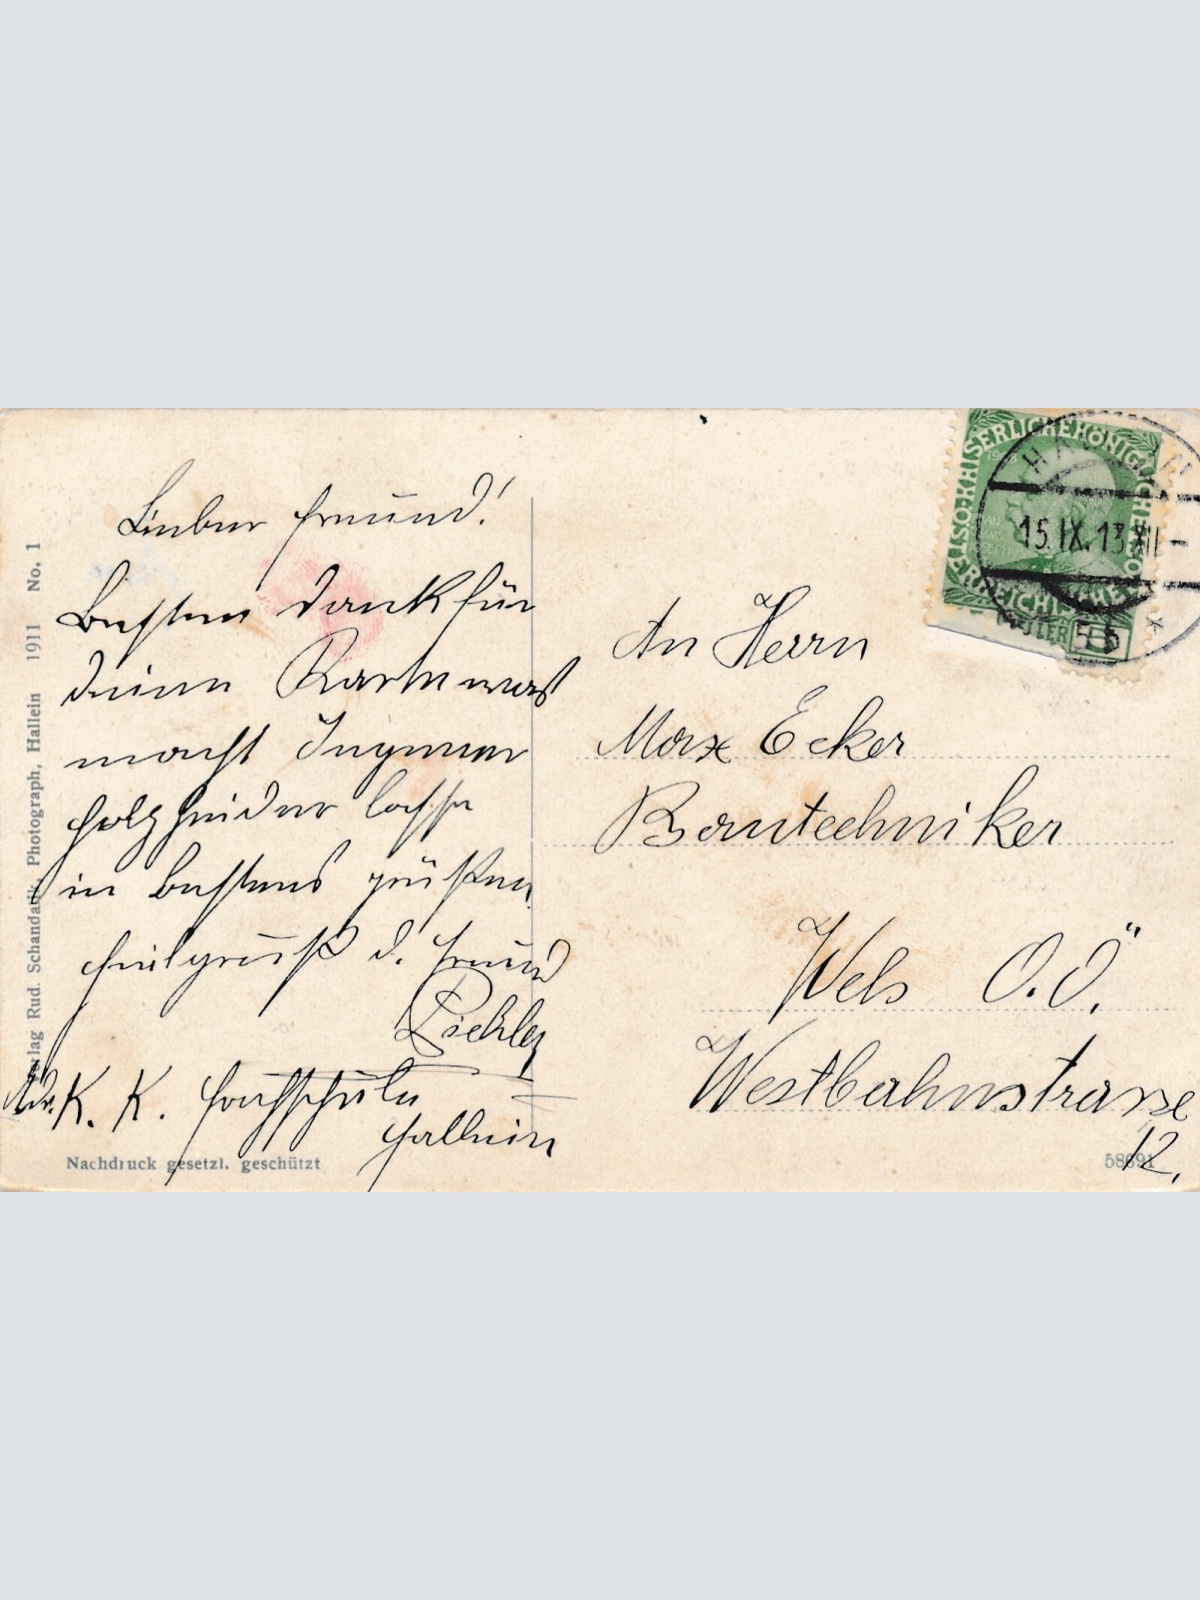 Lieber Freund!
Besten Dank für
deine Karte was
macht Ingenieur
Holzheider lasse
in bestens grüßen
Heilgruß d. Freund
Pichler
Adr. K. K. Fachschule
Hallein
Verlag Rud. Schandalik, Photograph, Hallein 1911 No. 1
Nachdruck gesetzl. geschützt
KAISERLICHE KÖNIGLICHE ÖSTERREICHISCHE
15.IX.13 XII
HELLER 5
An Herrn
Max Ecker
Bautechniker
Wels O.Ö.
Westbahnstrasse
12.